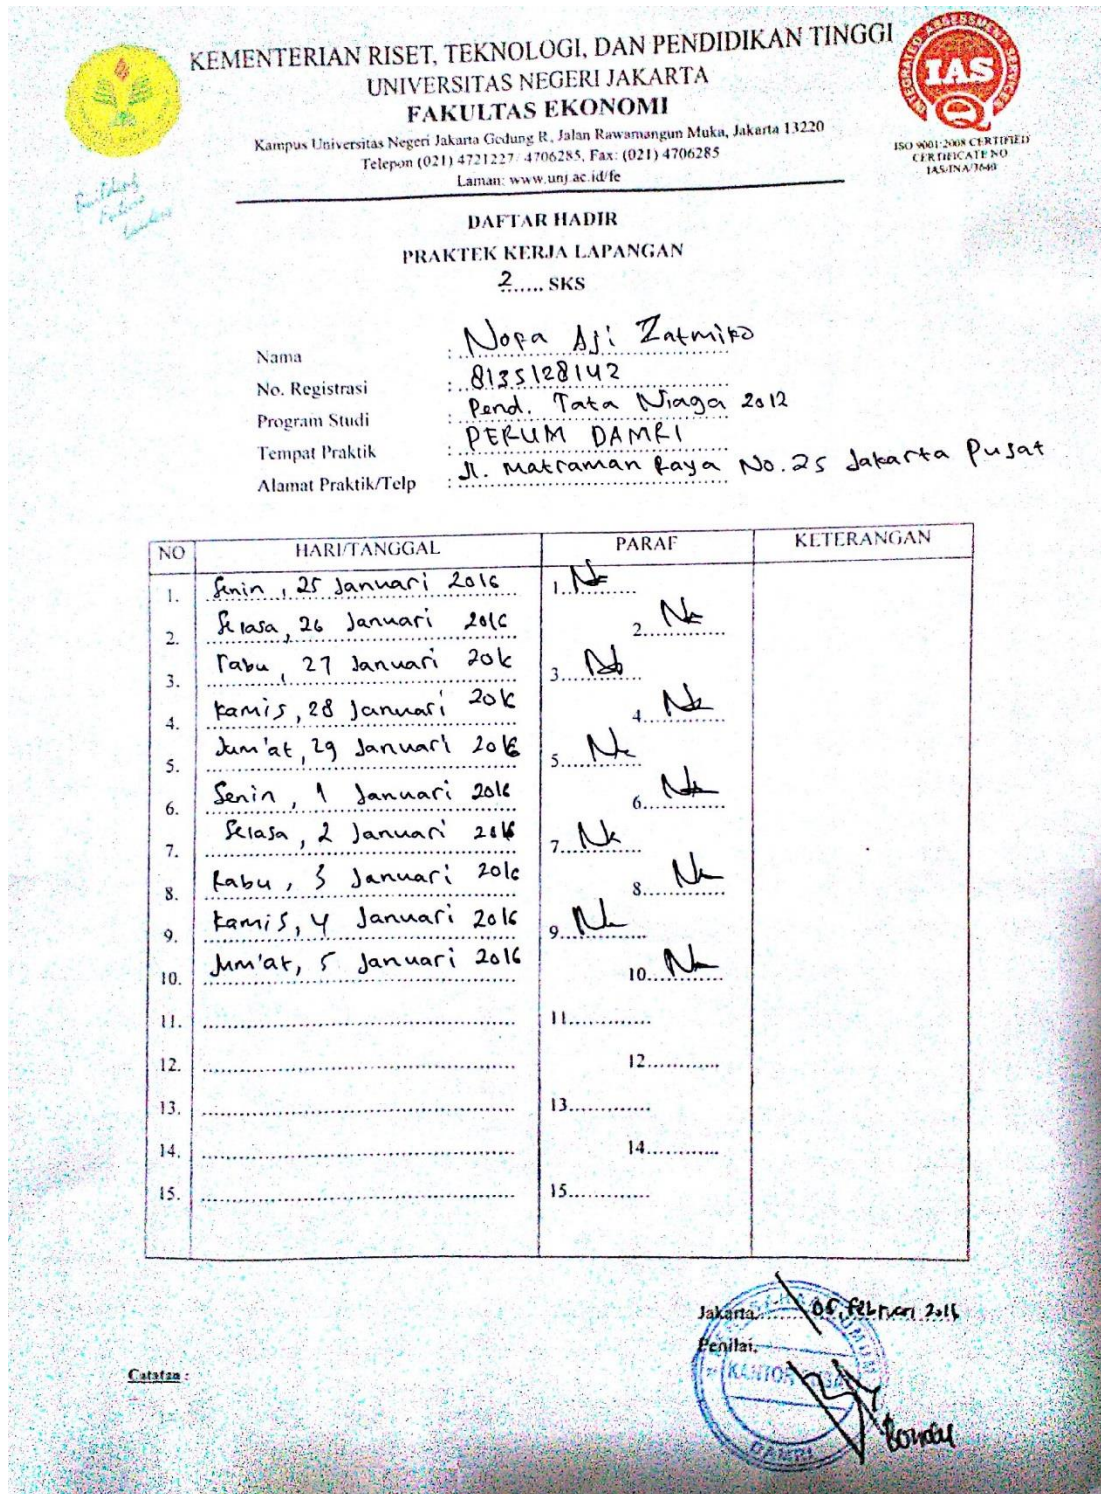 KEMENTERIAN RISET, TEKNOLOGI, DAN PENDIDIKAN TINGGI
UNIVERSITAS NEGERI JAKARTA
FAKULTAS EKONOMI
Kampus Universitas Negeri Jakarta Gedung R, Jalan Rawamangun Muka, Jakarta 13220
Telepon (021) 4721227/ 4706285, Fax: (021) 4706285
Laman: www.unj.ac.id/fe
Building
Future
Leaders
INTEGRATED ASSESSMENT SERVICES
IAS
ISO 9001:2008 CERTIFIED
CERTIFICATE NO
IAS/INA/3640
DAFTAR HADIR
PRAKTEK KERJA LAPANGAN
2...... SKS
Nama : Nopa Aji Zatmiko
No. Registrasi : 8135128142
Program Studi : Pend. Tata Niaga 2012
Tempat Praktik : PERUM DAMRI
Alamat Praktik/Telp : Jl. Matraman Raya No. 25 Jakarta Pusat
NO HARI/TANGGAL PARAF KETERANGAN
1. Senin, 25 Januari 2016 1.
2. Selasa, 26 Januari 2016 2.
3. Rabu, 27 Januari 2016 3.
4. Kamis, 28 Januari 2016 4.
5. Jum'at, 29 Januari 2016 5.
6. Senin, 1 Januari 2016 6.
7. Selasa, 2 Januari 2016 7.
8. Rabu, 3 Januari 2016 8.
9. Kamis, 4 Januari 2016 9.
10. Jum'at, 5 Januari 2016 10.
11. 11.
12. 12.
13. 13.
14. 14.
15. 15.
Jakarta, 05, Februari 2016
Penilai,
KANTOR
DAMRI
Catatan :